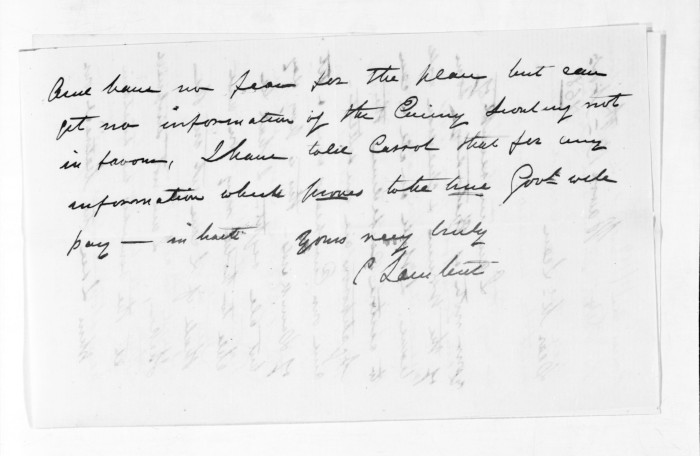 and have no fear for the place but can
get no information of the Enemy Scouting not
in favour, I have told Carrol that for any
information which proves to be true Govt. will
pay — in haste Yours very truly
C Lambert